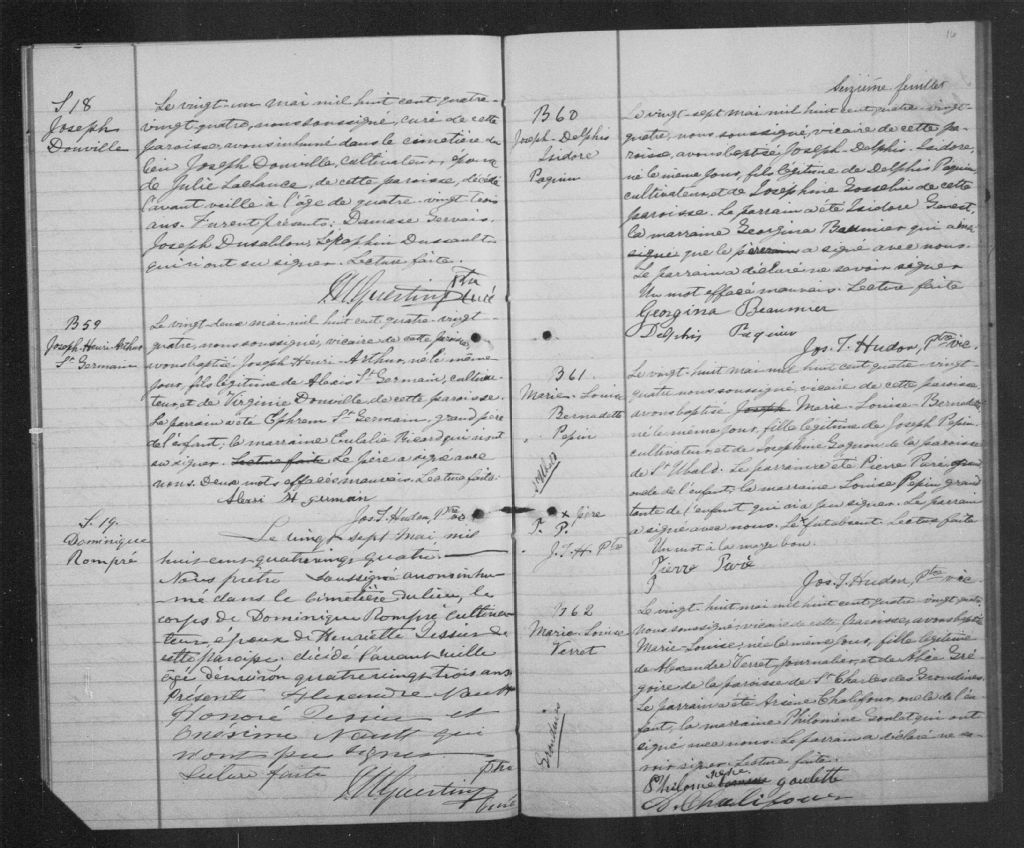 S 18
Joseph
Douville
Le vingt-un mai mil huit cent quatre-
vingt quatre, nous soussigné, curé de cette
paroisse, avons inhumé dans le cimetière du
lieu Joseph Douville, cultivateur, époux
de Julie Lachance, de cette paroisse, décédé
l'avant veille à l'âge de quatre-vingt trois
ans. Furent présents: Damase Gervais,
Joseph Dusablon, Séraphin Dussault
qui n'ont su signer. Lecture faite.
Ptre
curé
B 59
Joseph-Henri-Arthur
St Germain
Le vingt-deux mai mil huit cent quatre-vingt-
quatre, nous soussigné, vicaire de cette paroisse
avons baptisé Joseph-Henri-Arthur, né le même
jour, fils légitime de Alexis St Germain, cultiva-
teur et de Virginie Douville de cette paroisse.
Le parrain a été Ephrem St Germain, grand père
de l'enfant, la marraine Eulalie Ricard qui n'ont
su signer. Lecture faite Le père a signé avec
nous. Deux mots effacés mauvais. Lecture faite.
Alexi St german
Jos. T. Hudon, Ptre vic
S. 19.
Dominique
Rompré
Le vingt sept mai mil
huit cent quatre vingt quatre
Nous prêtre soussigné avons inhu-
mé dans le cimetière du lieu, le
corps de Dominique Rompré cultiva-
teur, époux de Henriette Tessier de
cette paroisse, décédé l'avant veille
âgé d'environ quatre vingt trois ans
Présents Alexandre
Honoré Tessier et
Onésime qui
n'ont pu signer
Lecture faite
Ptre
Curé
16
Seizième feuillet
B 60
Joseph-Delphis
Isidore
Paquin
Le vingt-sept mai mil huit cent quatre-vingt-
quatre, nous soussigné, vicaire de cette pa-
roisse, avons baptisé Joseph-Delphis-Isidore,
né le même jour, fils légitime de Delphis Paquin,
cultivateur et de Joséphine Gosselin de cette
paroisse. Le parrain a été Isidore
la marraine Georgina Beaumier qui a
signé que le père a signé avec nous.
Le parrain a déclaré ne savoir signer
Un mot effacé mauvais. Lecture faite
Georgina Beaumier
Delphis Paquin
Jos. T. Hudon, Ptre vic.
B 61
Marie-Louise
Bernadette
Pepin
St Ubald
Le vingt-huit mai mil huit cent quatre-vingt-
quatre nous soussigné, vicaire de cette paroisse
avons baptisé Joseph Marie-Louise-Bernadette
né le même jour, fille légitime de Joseph Pepin
cultivateur et de Joséphine Gagnon de la paroisse
de St Ubald. Le parrain a été Pierre Paré,
oncle de l'enfant, la marraine Louise Pepin grand
tante de l'enfant qui n'a pu signer. Le parrain
a signé avec nous. Le x fut absent. Lecture faite
Un mot à la marge bon.
x père
T. P.
J. T. H. Ptre
Pierre Paré
Jos. T. Hudon, Ptre vic.
B 62
Marie-Louise
Verret
Grondines
Le vingt-huit mai mil huit cent quatre-vingt quatre
nous soussigné vicaire de cette Paroisse, avons baptisé
Marie-Louise, née le même jour, fille légitime
de Alexandre Verret, journalier, et de Alice Gré-
goire de la paroisse de St Charles des Grondines.
Le parrain a été Arsène Chalifour, oncle de l'en-
fant, la marraine Philomène Goulet qui ont
signé avec nous. Le parrain a déclaré ne sa-
voir signer. Lecture faite.
goulette
A. Chalifour